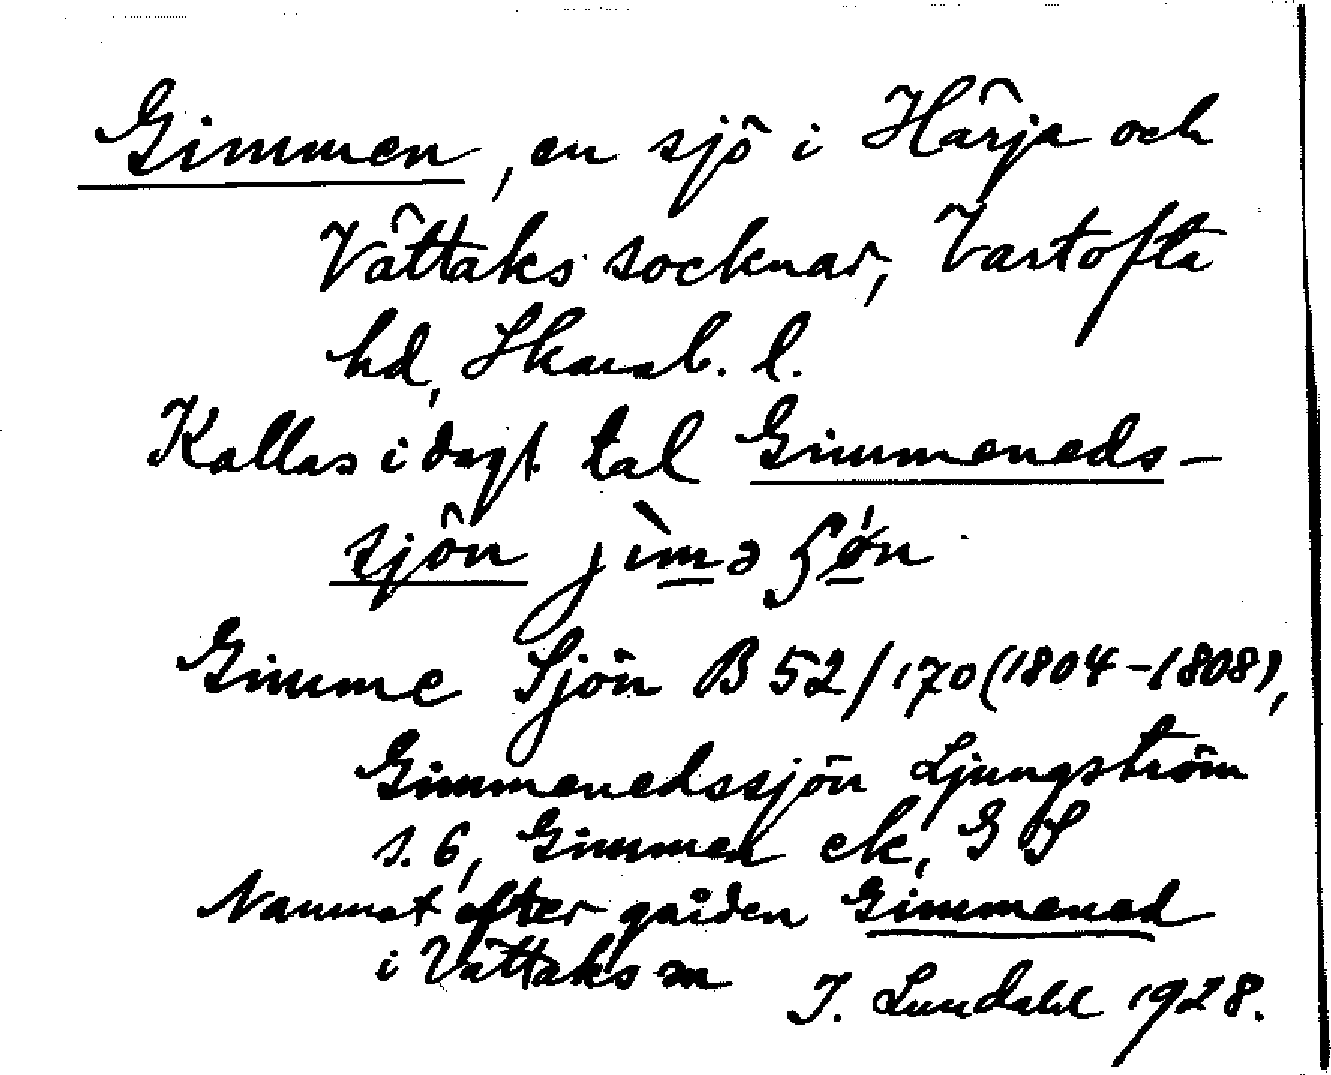 Gimmen, en sjö i Härja och
Vättaks socknar, Vartofta
hd, Skarab. l.
Kallas i dagl. tal Gimmeneds-
sjön
Gimme Sjön B 52/170 (1804-1808),
Gimmenedssjön Ljungström
s. 6, Gimmen ek, GS
Namnet efter gården Gimmened
i Vättaks sn
I. Lundahl 1928.